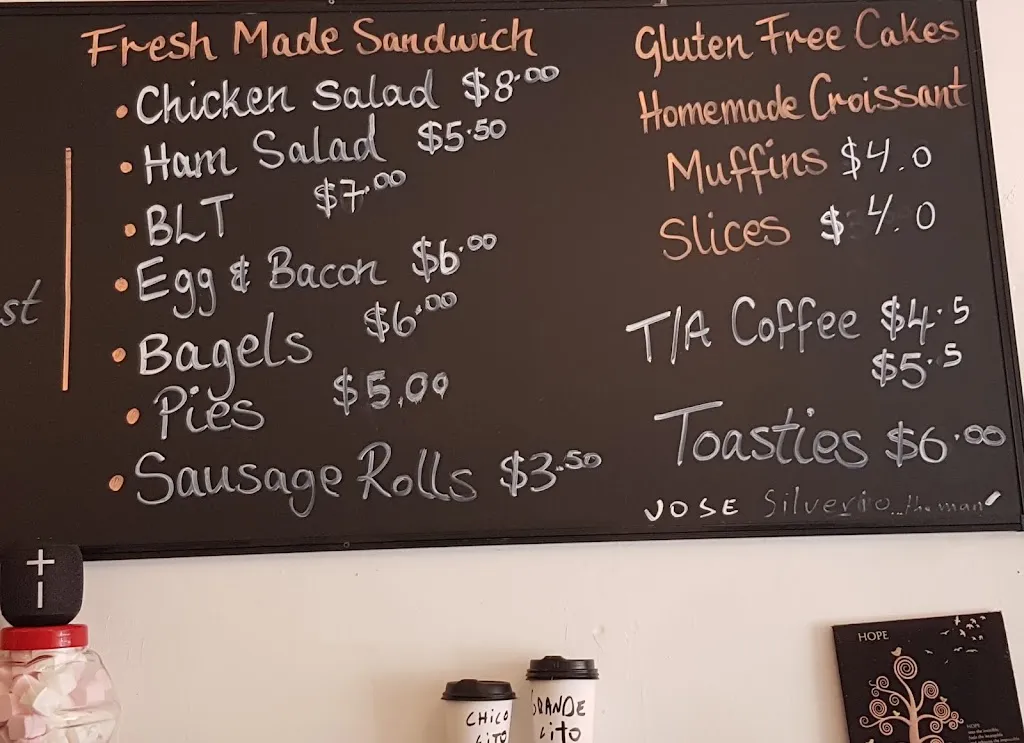 Fresh Made Sandwich
• Chicken Salad $8.00
• Ham Salad $5.50
• BLT $7.00
• Egg & Bacon $6.00
• Bagels $6.00
• Pies $5.00
• Sausage Rolls $3.50
st
Gluten Free Cakes
Homemade Croissant
Muffins $4.0
Slices $4.0
T/A Coffee $4.5
$5.5
Toasties $6.00
JOSE Silverio...the man
CHICO
CITO
GRANDE
CITO
HOPE
HOPE